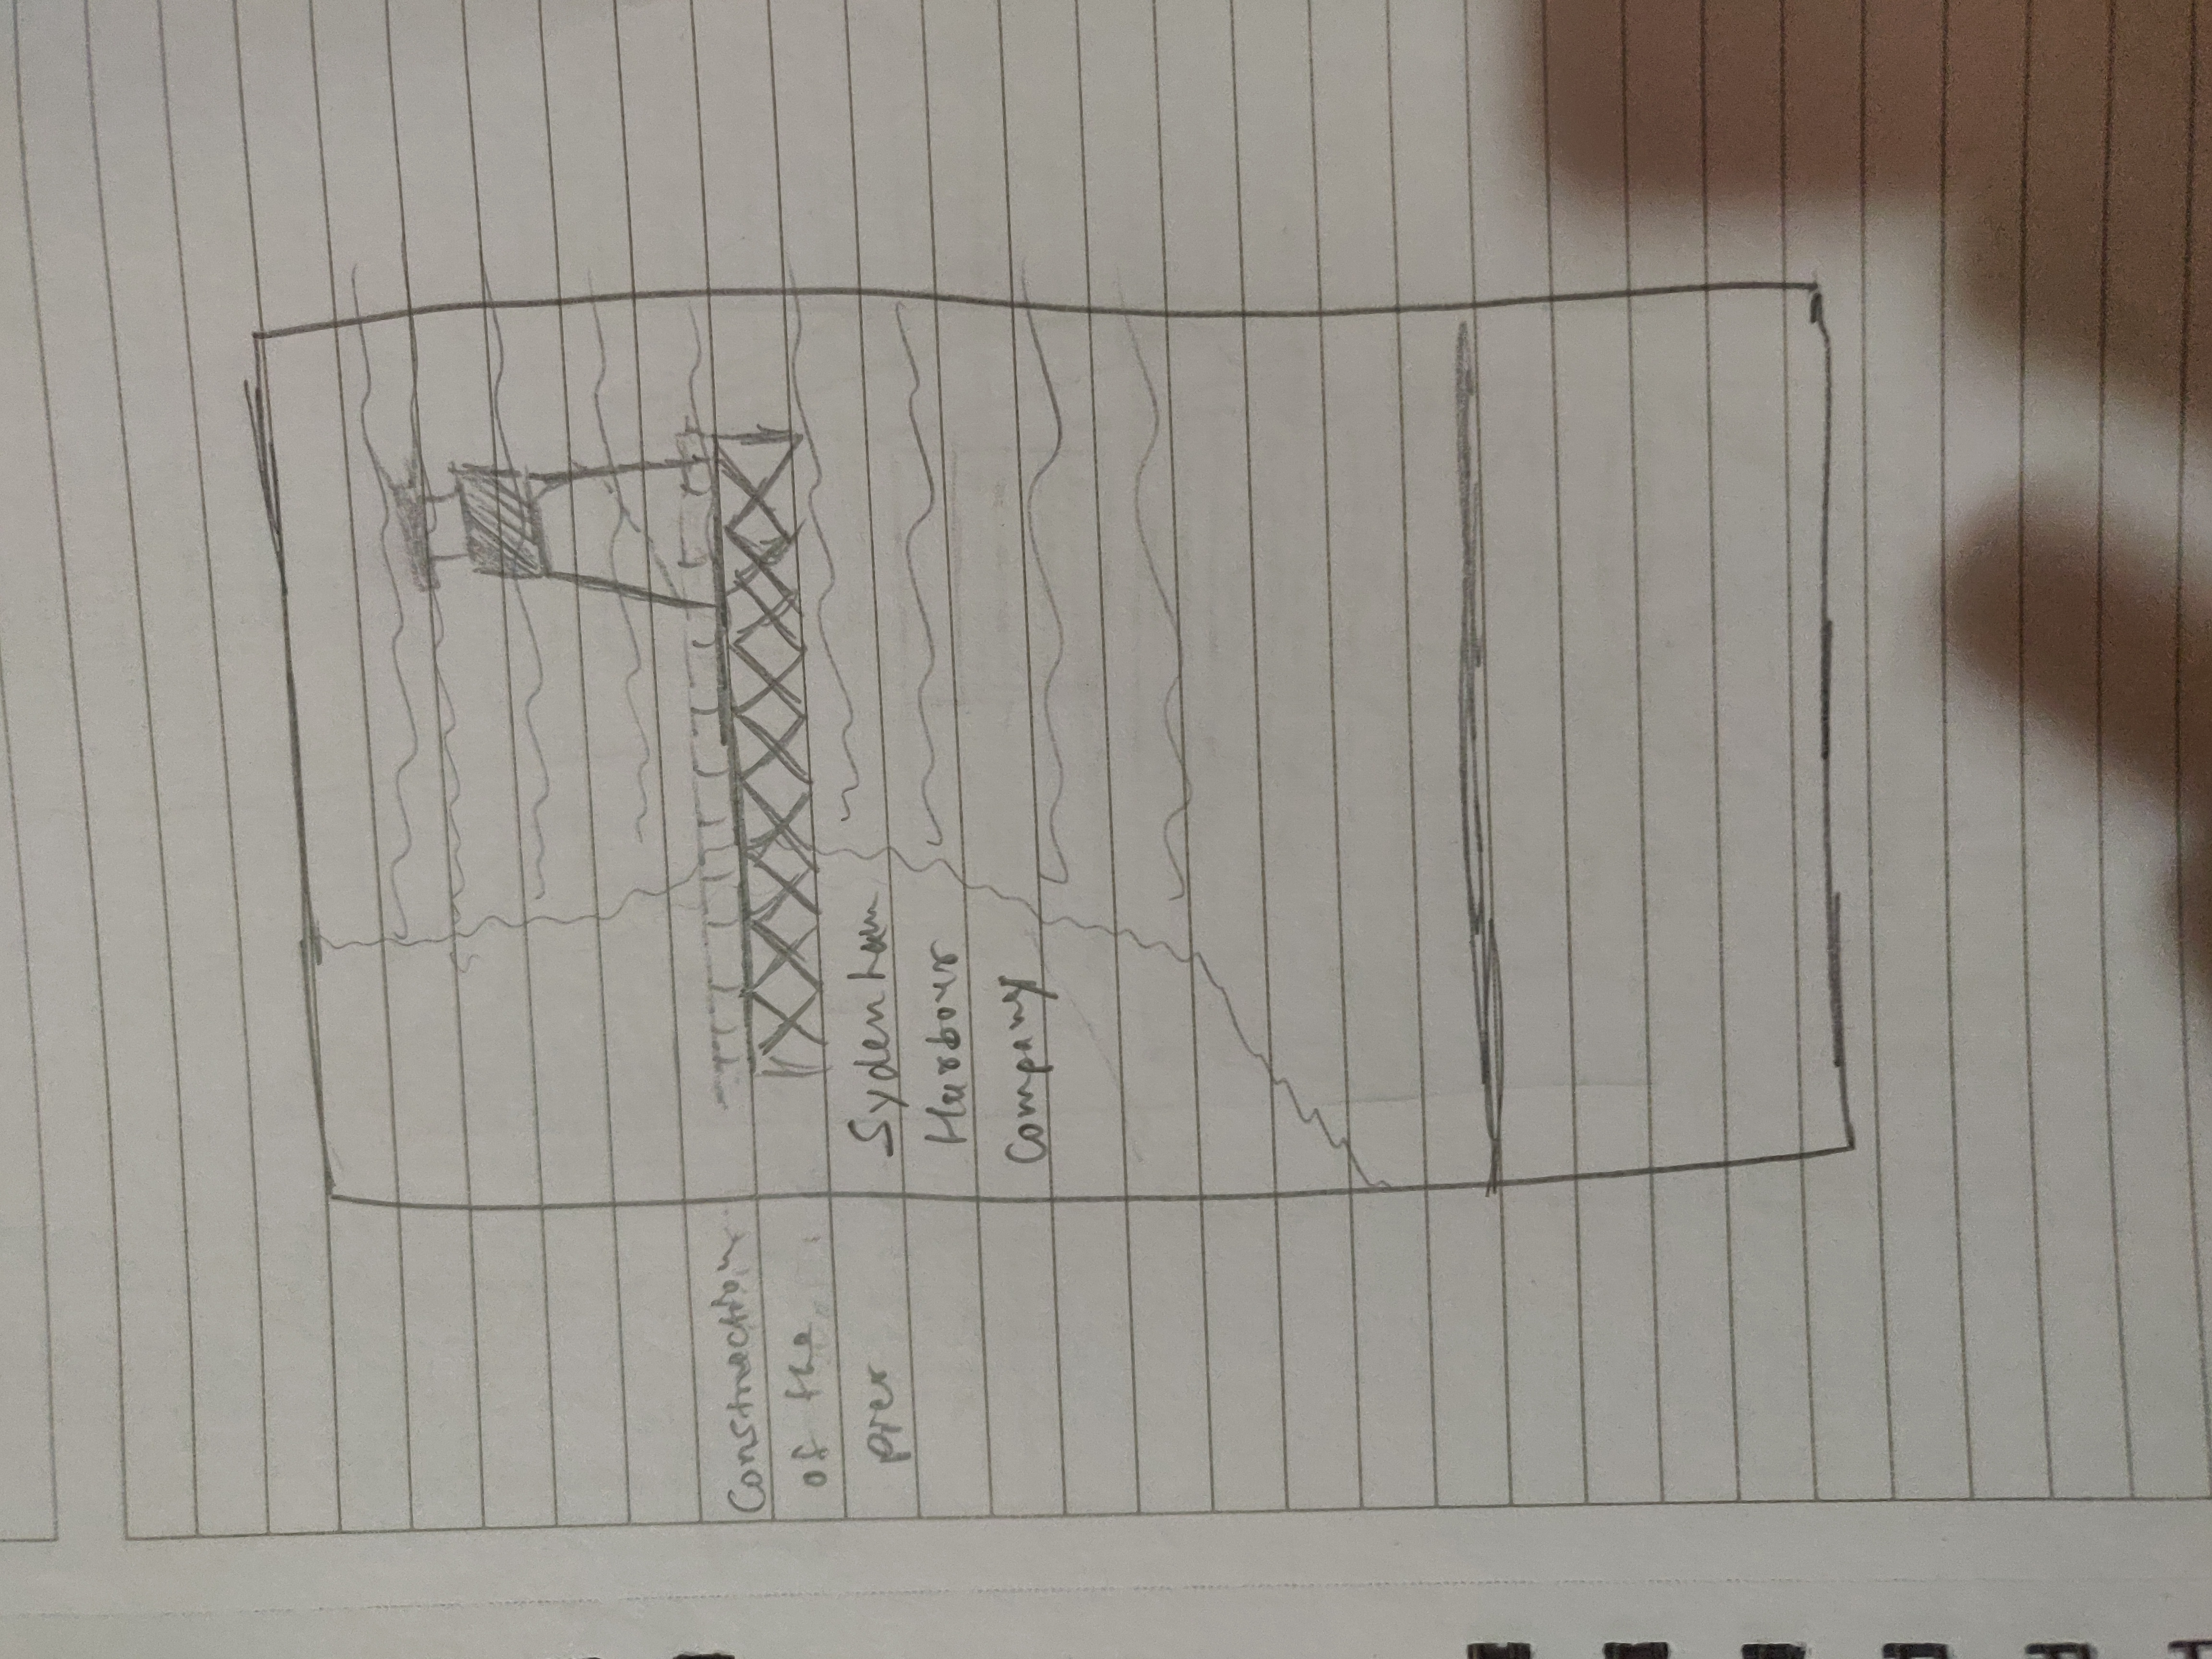 Construction
of the
pier
Sydenham
Harbour
Company